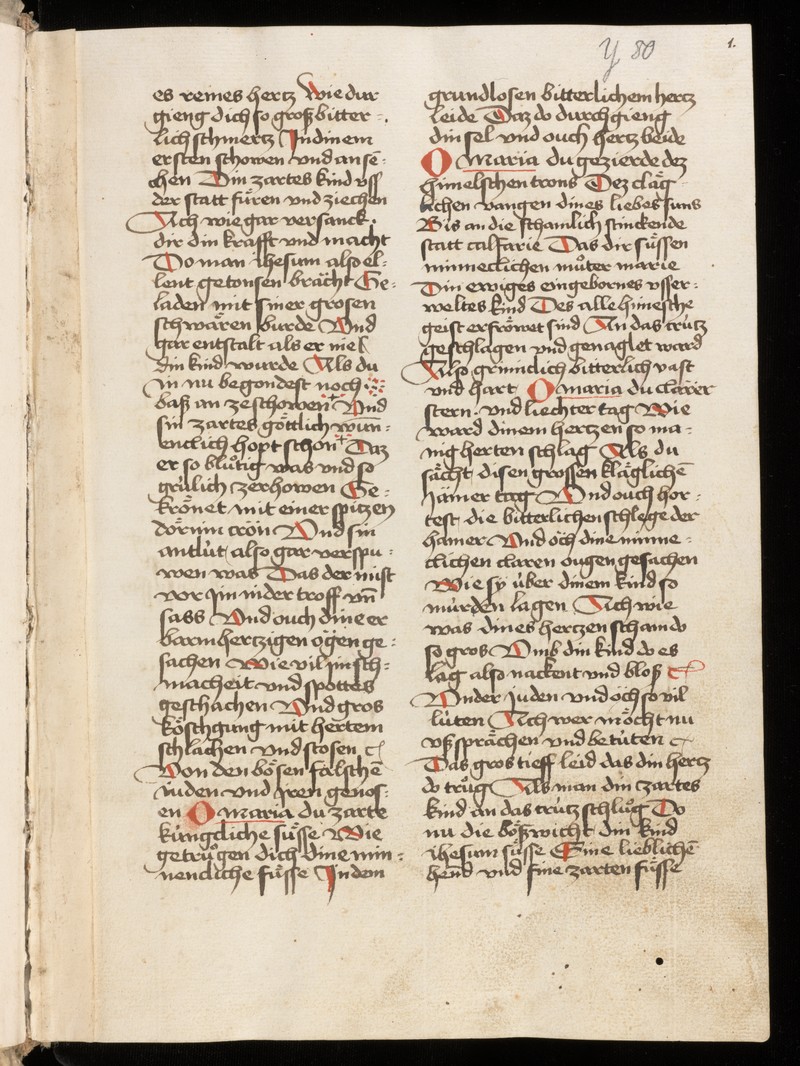 Y 80
1.
es reines hertz Wie dur
gieng dich so groß bitter-
lich schmertz Jn dinem
ersten schowen vnd ansē-
chen Din zartes kind vſſ
der statt fuͤren vnd ziechen
Ach wie gar versanck.
dir din krafft vnd macht
Do man ihesum also el-
lent getonsen braͤcht Ge-
laden mit siner grosen
schwaͤren burde Vnd
gar entstalt als er nie
din kind wurde Als du
in nu begondest noch
baß an ze schowen Vnd
sin zartes goͤttlich wun-
enclich hopt schon Daz
er so bluͦtig was vnd so
grúlich zerhowen Ge-
kroͤnet mit einer spitzen
doͤrnin cron Vnd sin
antlút also gar verspu-
wen was Das der mist
vor jm nider troff vn̄
sass Vnd ouch dine er
barmhertzigen oͮgen ge-
sachen Wie vil jm sch-
macheit vnd spottes
geschachen Vnd gros
koͤschgung mit hertem
schlachen vnd stosen
Von den boͤsen falschē
iuden vnd jren genos-
en O maria du zarte
kúngcliche suͤsse Wie
getruͦgen dich dine min-
nencliche fuͤsse Jn dem
grundlosen bitterlichem hertz
leide Daz do durch gieng
din sel vnd ouch hertz beide
O maria du gezierde dez
himelschen trons Dez claͤg
lichen vangen dines liebes suns
Bis an die schamlich stinckende
statt calfarie Das dir suͤssen
minneclichen muͦter marie
Din ewiges eingebornes vsser-
weltes kind Des alle himesche
geist erfroͤwet sind An das crútz
geschlagen vnd genaglet ward
Also grimclich bitterlich vast
vnd hart O maria du clarer
stern vnd liechter tag Wie
ward dinem hertzen so ma-
nig herten schlag Als du
saͤcht disen grossen klaͤglichē
jamer tag Vnd ouch hor-
test die bitterlichen schlege der
hamer Vnd och dine minne-
clichen claren ougen gesachen
Wie sy úber dinem kind so
múrden lagen Ach wie
was dines hertzen scham do
so gros Vmb din kind do es
lag also nackent vnd bloß
Vnder juden vnd och so vil
lúten Ach wer moͤcht nu
vß spraͤchen vnd betúten
Das gros tieff leid das din hertz
do truͦg Als man din zartes
kind an das crútz schluͦg Do
nu die boͤßwicht din kind
ihesum suͤsse Sine lieblichē
hend vnd sine zarten fuͤsse